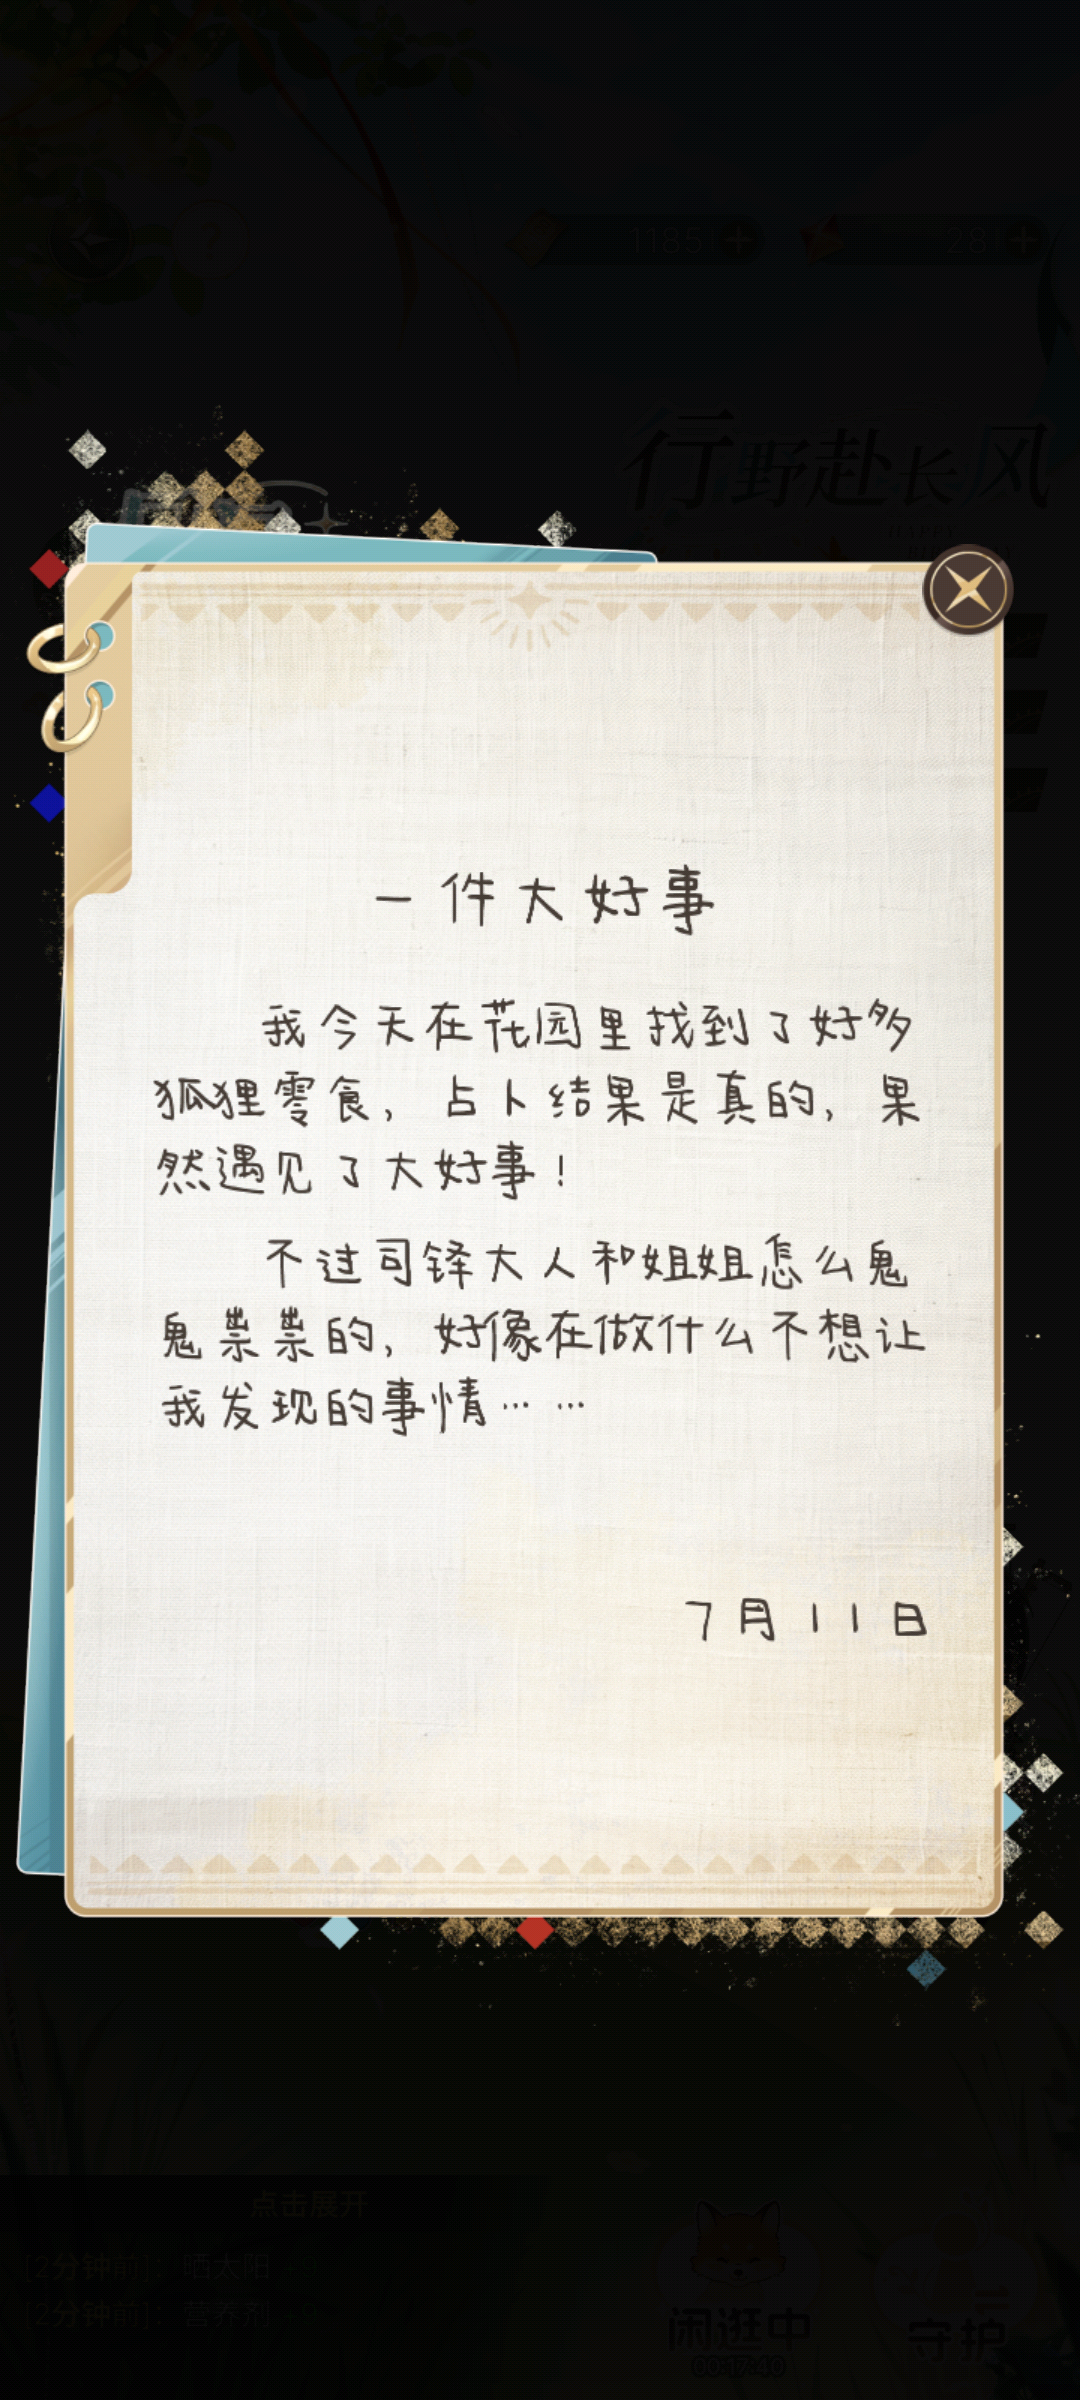 1185
28
行野赴长风
一件大好事
我今天在花园里找到了好多
狐狸零食，占卜结果是真的，果
然遇见了大好事！
不过司铎大人和姐姐怎么鬼
鬼祟祟的，好像在做什么不想让
我发现的事情……
7月11日
点击展开
[2分钟前]：晒太阳 +9
[2分钟前]：营养剂 +9
闲逛中
守护
00:17:40